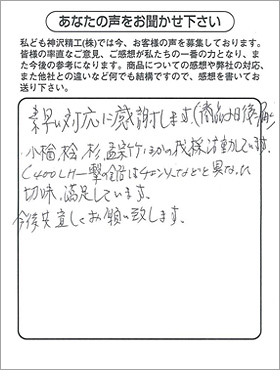 あなたの声をお聞かせ下さい
私ども神沢精工(株)では今、お客様の声を募集しております。
皆様の率直なご意見、ご感想が私たちの一番の力となり、ま
た今後の参考になります。商品についての感想や弊社の対応、
また他社との違いなど何でも結構ですので、感想を書いてお
送り下さい。
素早い対応に感謝します。(商品
小楢、桧、杉、孟宗竹ほかの伐採活動しています。
C400LH一撃の鋸はチェンソーなどと異なった
切味、満足しています。
今後共宜しくお願い致します。